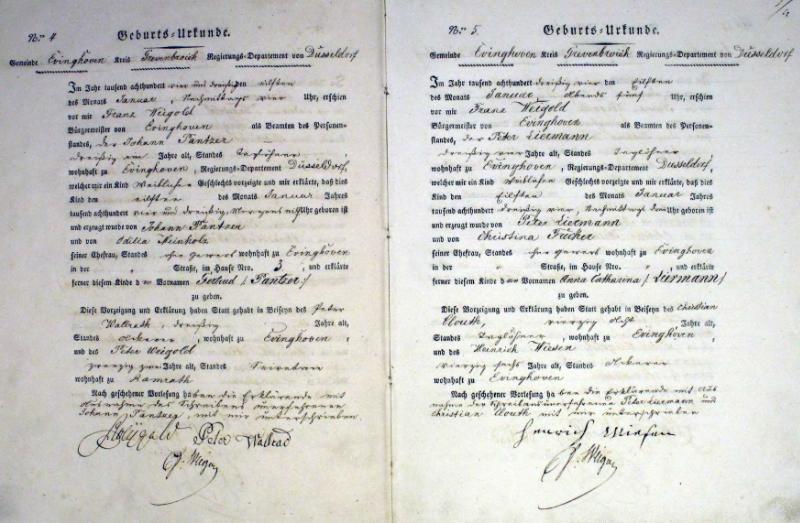 No. 4
Geburts-Urkunde.
Gemeinde Evinghoven Kreis Grevenbroich Regierungs-Departement von Düsseldorf
Im Jahr tausend achthundert vier und dreißig den eilften
des Monats Januar, Nachmittags vier Uhr, erschien
vor mir Franz Weigold
Bürgermeister von Evinghoven als Beamten des Personen-
standes, der Johann Pantzer
dreißig Jahre alt, Standes
wohnhaft zu Evinghoven, Regierungs-Departement Düsseldorf,
welcher mir ein Kind Weiblichen Geschlechts vorzeigte und mir erklärte, daß dies
Kind den eilften des Monats Januar Jahres
tausend achthundert vier und dreißig, Morgens Uhr geboren ist
und erzeugt wurde von Johann Pantzer
und von Odilia Meinholz
seiner Ehefrau, Standes ohne Gewerb wohnhaft zu Evinghoven
in der " Straße, im Hause Nro. 3, und erklärte
ferner diesem Kinde den Vornamen Gertrud (Pantzer)
zu geben.
Diese Vorzeigung und Erklärung haben Statt gehabt in Beiseyn des Peter
Wallrath, dreißig Jahre alt,
Standes Ackerer, wohnhaft zu Evinghoven,
und des Peter Weigold
Jahre alt, Standes Secretair
wohnhaft zu Ramrath
Nach geschehener Vorlesung haben die Erklärende mit
Ausnahme des Schreibens unerfahrenen
Johann Pantzer, mit mir unterschrieben.
Peter Wallrad
No. 5.
Geburts-Urkunde.
Gemeinde Evinghoven Kreis Grevenbroich Regierungs-Departement von Düsseldorf
Im Jahr tausend achthundert dreißig vier den Eilften
des Monats Januar Abends fünf Uhr, erschien
vor mir Franz Weigold
Bürgermeister von Evinghoven als Beamten des Personen-
standes, der Peter Liermann
dreißig vier Jahre alt, Standes Taglöhner
wohnhaft zu Evinghoven, Regierungs-Departement Düsseldorf,
welcher mir ein Kind Weiblichen Geschlechts vorzeigte und mir erklärte, daß dies
Kind den Eilften des Monats Januar Jahres
tausend achthundert dreißig vier, Nachmittags Uhr geboren ist
und erzeugt wurde von Peter Liermann
und von Christina
seiner Ehefrau, Standes ohne Gewerb wohnhaft zu Evinghoven
in der " Straße, im Hause Nro. , und erklärte
ferner diesem Kinde den Vornamen Anna Catharina (Liermann)
zu geben.
Diese Vorzeigung und Erklärung haben Statt gehabt in Beiseyn des Christian
Clouth, vierzig acht Jahre alt,
Standes Taglöhner, wohnhaft zu Evinghoven,
und des Heinrich Wiesen
vierzig sechs Jahre alt, Standes Ackerer
wohnhaft zu Evinghoven
Nach geschehener Vorlesung haben die Erklärende mit Aus
nahme der Schreibens unerfahrenen Peter Liermann und
Christian Clouth mit mir unterschrieben
Henrich Wiesen